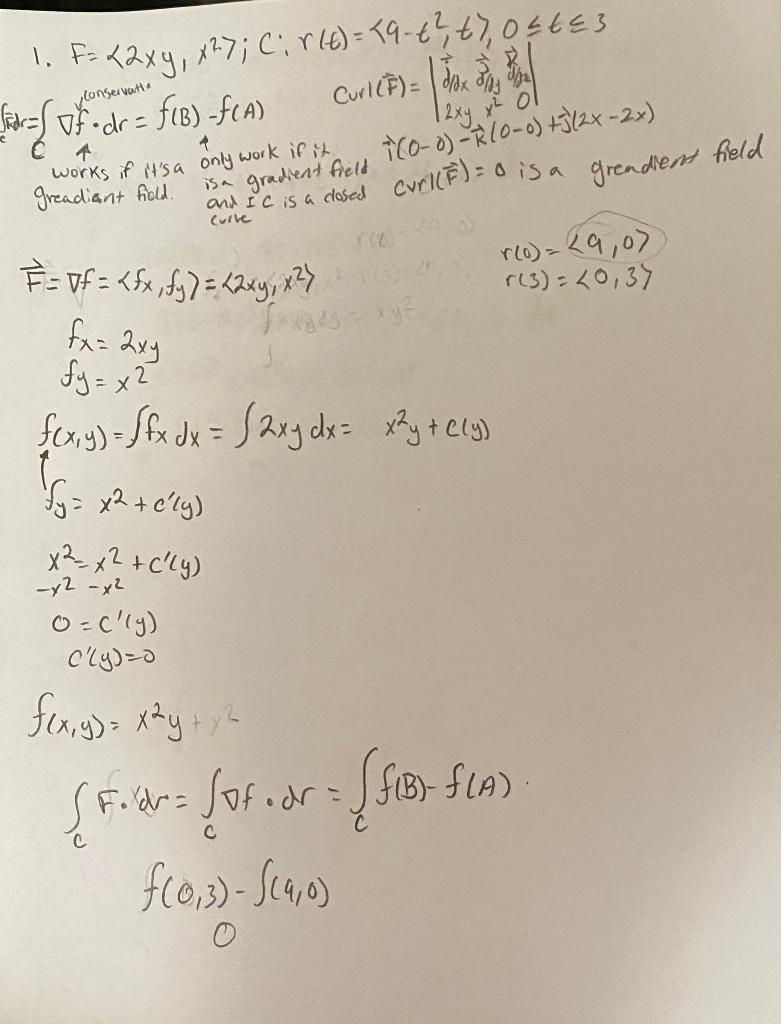 1. F= <2xy, x²>; C: r(t) = <9-t², t>, 0 ≤ t ≤ 3
conservative
∫c F·dr = ∫C ∇f · dr = f(B) - f(A)
works if it's a
greadiant field.
only work if it
is a gradient field
and I C is a closed
curve
Curl(F⃗) = | i⃗ j⃗ k⃗ |
d/dx d/dy d/dz
2xy x² 0
i⃗(0-0) - k⃗(0-0) + j⃗(2x-2x)
curl(F⃗) = 0 is a greadient field
r(0) = <9,0>
r(3) = <0,3>
F⃗ = ∇f = <fx, fy> = <2xy, x²>
fx = 2xy
fy = x²
f(x,y) = ∫fx dx = ∫2xy dx = x²y + c(y)
fy = x² + c'(y)
x² = x² + c'(y)
-x² -x²
0 = c'(y)
c'(y)=0
f(x,y) = x²y
∫C F·dr = ∫C ∇f · dr = ∫C f(B) - f(A)
f(0,3) - f(9,0)
0